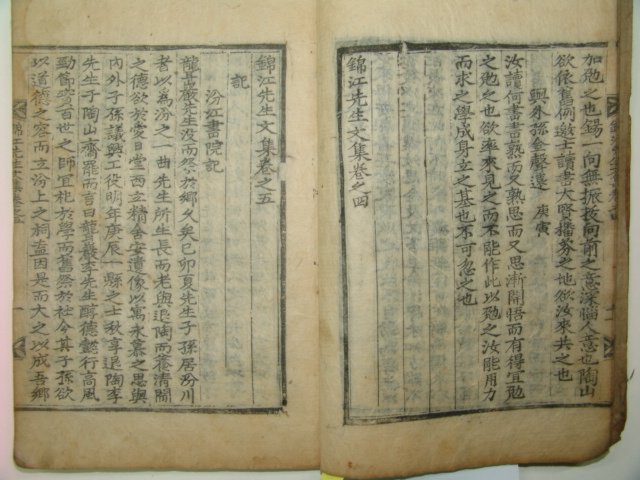 加勉之也錫一向無振拔向前之意深惱人意也陶山
欲依舊例邀士讀書大賢播芬之地欲汝來共之也
與末孫金聲遠 庚寅
汝讀何書書熟而又熟思而又思漸開悟而有得宜勉
之勉之也欲率來見之而不能作此以勉之汝能用力
而求之學成身立之基也不可忽之也
錦江先生文集卷之四
錦江先生文集卷之五
記
汾江書院記
龍巖嚴先生沒而祭於鄉久矣已卯夏先生子孫居汾川
者以為汾之一曲先生所生長而老與退陶而養清閒
之德欲於愛日堂西立精舍安遺像以寓永慕之思與
內外子孫議興工役明年庚辰一縣之士秋享退陶李
先生于陶山齊罷而言曰龍巖李先生醇德懿行高風
勁節實百世之師宜祀於學而舊祭於社今其子孫欲
以道德之容而立汾上之祠盍因是而大之以成吾鄉